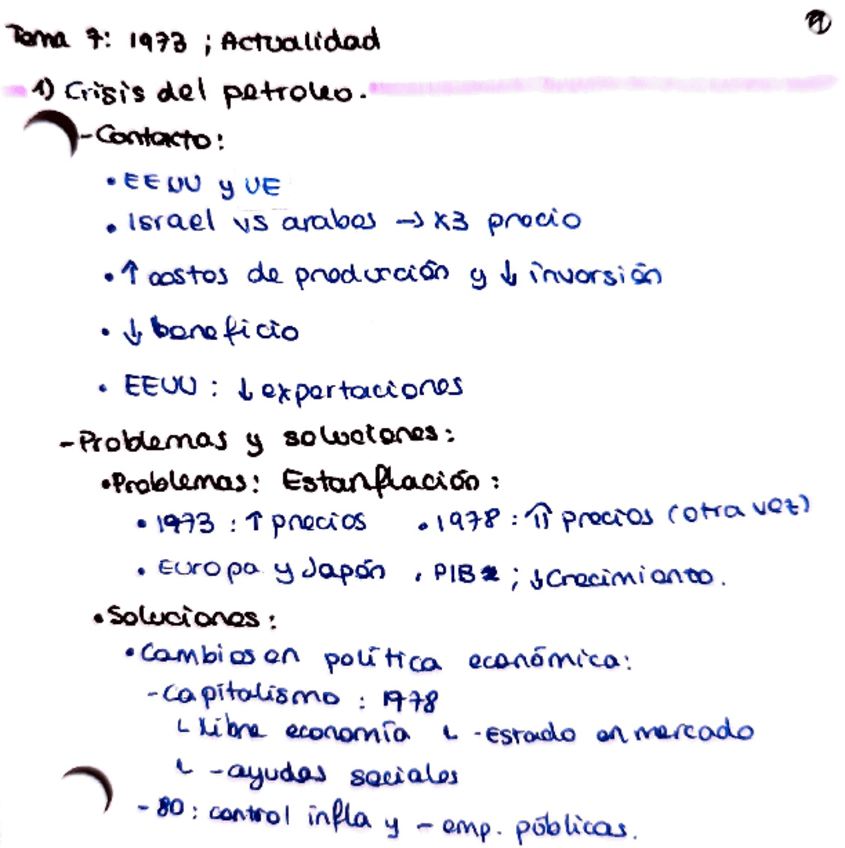 Tema 7: 1973 ; Actualidad
1) Crisis del petroleo.
- Contacto:
• EEUU y UE
• Israel vs arabes → x3 precio
• ↑ costos de producción y ↓ inversión
• ↓ beneficio
• EEUU : ↓ exportaciones
- Problemas y soluciones:
• Problemas: Estanflación:
• 1973 : ↑ precios • 1978 : ⇑ precios (otra vez)
• Europa y Japón , PIB ; ↓ Crecimiento.
• Soluciones:
• Cambios en política económica:
- Capitalismo : 1978
↳ libre economía ↳ - Estado en mercado
↳ - ayudas sociales
- 80 : control infla y - emp. públicas.